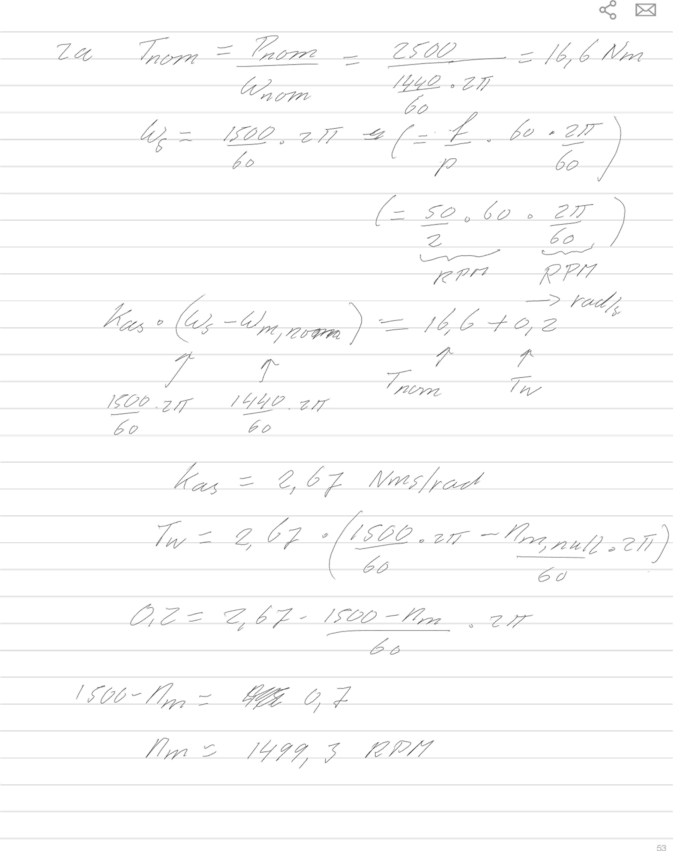 2a Tnom = Pnom / ωnom = 2500 / (1440/60 · 2π) = 16,6 Nm
ωs = 1500/60 · 2π (= f/p · 60 · 2π/60)
(= 50/2 · 60 · 2π/60)
RPM RPM
→ rad/s
kas · (ωs − ωm,nom) = 16,6 + 0,2
↗ ↑ ↑ ↑
1500/60 · 2π 1440/60 · 2π Tnom Tw
kas = 2,67 Nms/rad
Tw = 2,67 · (1500/60 · 2π − nm,null/60 · 2π)
0,2 = 2,67 · (1500 − nm)/60 · 2π
1500 − nm = 0,7
nm = 1499,3 RPM
53